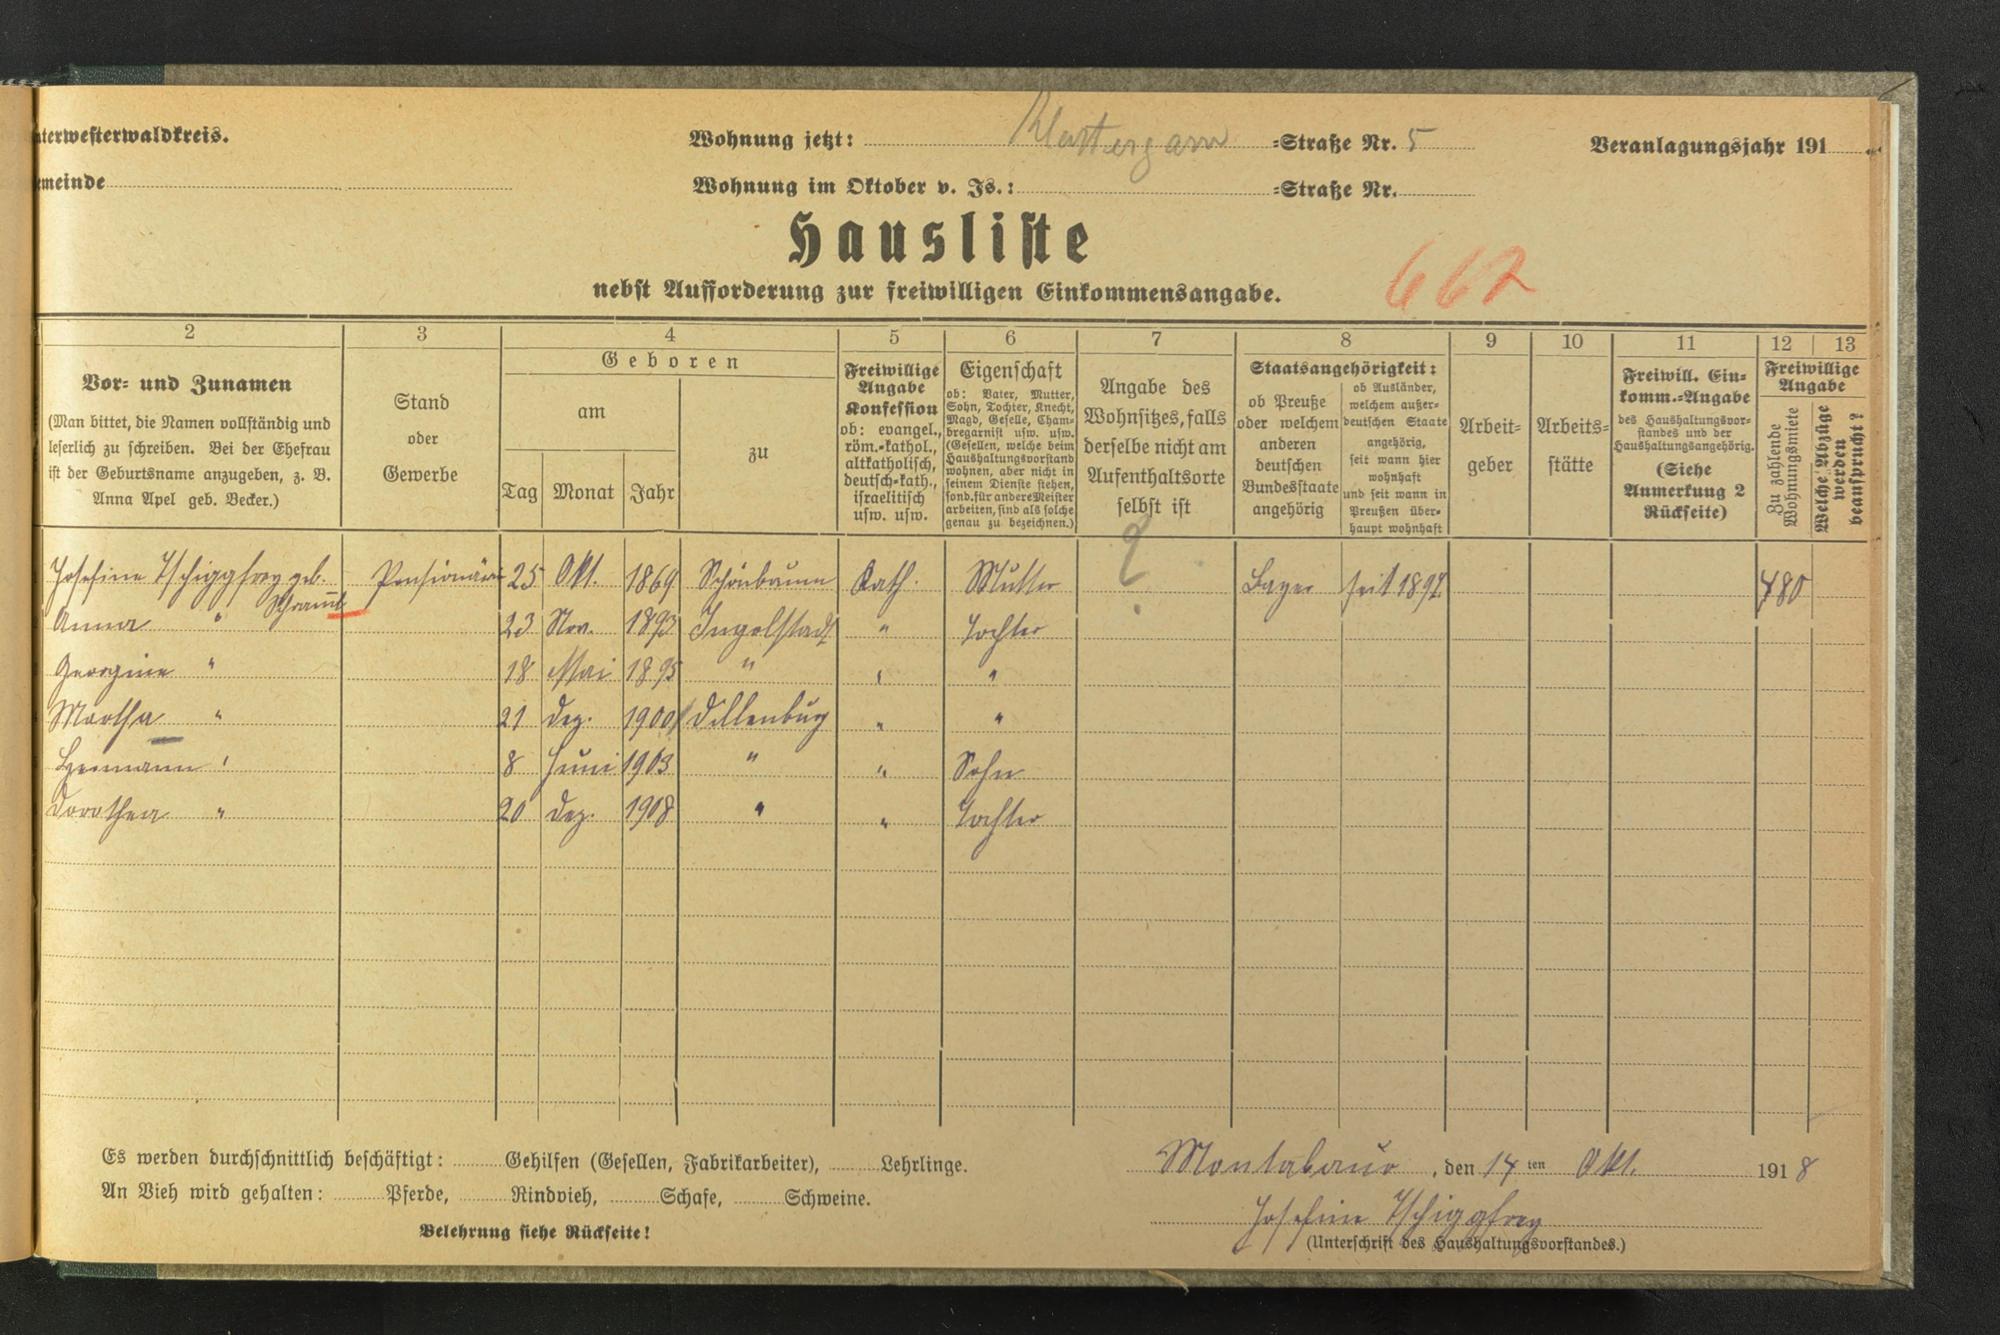 nterwesterwaldkreis.
Wohnung jetzt: -Straße Nr. 5
Veranlagungsjahr 191
meinde
Wohnung im Oktober v. Js.: -Straße Nr.
Hausliste
nebst Aufforderung zur freiwilligen Einkommensangabe.
662
2 3 4 5 6 7 8 9 10 11 12 13
Vor- und Zunamen
(Man bittet, die Namen vollständig und
leserlich zu schreiben. Bei der Ehefrau
ist der Geburtsname anzugeben, z. B.
Anna Apel geb. Becker.)
Stand
oder
Gewerbe
Geboren
am
Tag Monat Jahr
zu
Freiwillige
Angabe
Konfession
ob: evangel.,
röm.-kathol.,
altkatholisch,
deutsch-kath.,
israelitisch
usw. usw.
Eigenschaft
ob: Vater, Mutter,
Sohn, Tochter, Knecht,
Magd, Geselle, Cham-
bregarnist usw. usw.
(Gesellen, welche beim
Haushaltungsvorstand
wohnen, aber nicht in
seinem Dienste stehen,
sond. für andere Meister
arbeiten, sind als solche
genau zu bezeichnen.)
Angabe des
Wohnsitzes, falls
derselbe nicht am
Aufenthaltsorte
selbst ist
Staatsangehörigkeit:
ob Preuße
oder welchem
anderen
deutschen
Bundesstaate
angehörig
ob Ausländer,
welchem außer-
deutschen Staate
angehörig,
seit wann hier
wohnhaft
und seit wann in
Preußen über-
haupt wohnhaft
Arbeit-
geber
Arbeits-
stätte
Freiwill. Ein-
komm.-Angabe
des Haushaltungsvor-
standes und der
Haushaltungsangehörig.
(Siehe
Anmerkung 2
Rückseite)
Freiwillige
Angabe
Zu zahlende
Wohnungsmiete
Welche Abzüge
werden
beansprucht?
Josefine Tschiggfrey geb. Pensionärin 25 Okt. 1869 Schönbrunn Kath. Mutter ? Bayer seit 1897 480
Schraml
Anna " 23 Nov. 1893 Ingolstadt " Tochter
Georgine " 18 Mai 1895 " " "
Martha " 21 Dez. 1900 Dillenburg " "
Hermann " 8 Juni 1903 " " Sohn
Dorothea " 20 Dez. 1908 " " Tochter
Es werden durchschnittlich beschäftigt: Gehilfen (Gesellen, Fabrikarbeiter), Lehrlinge.
An Vieh wird gehalten: Pferde, Rindvieh, Schafe, Schweine.
Belehrung siehe Rückseite!
Montabaur, den 14 ten Okt. 1918
Josefine Tschiggfrey
(Unterschrift des Haushaltungsvorstandes.)